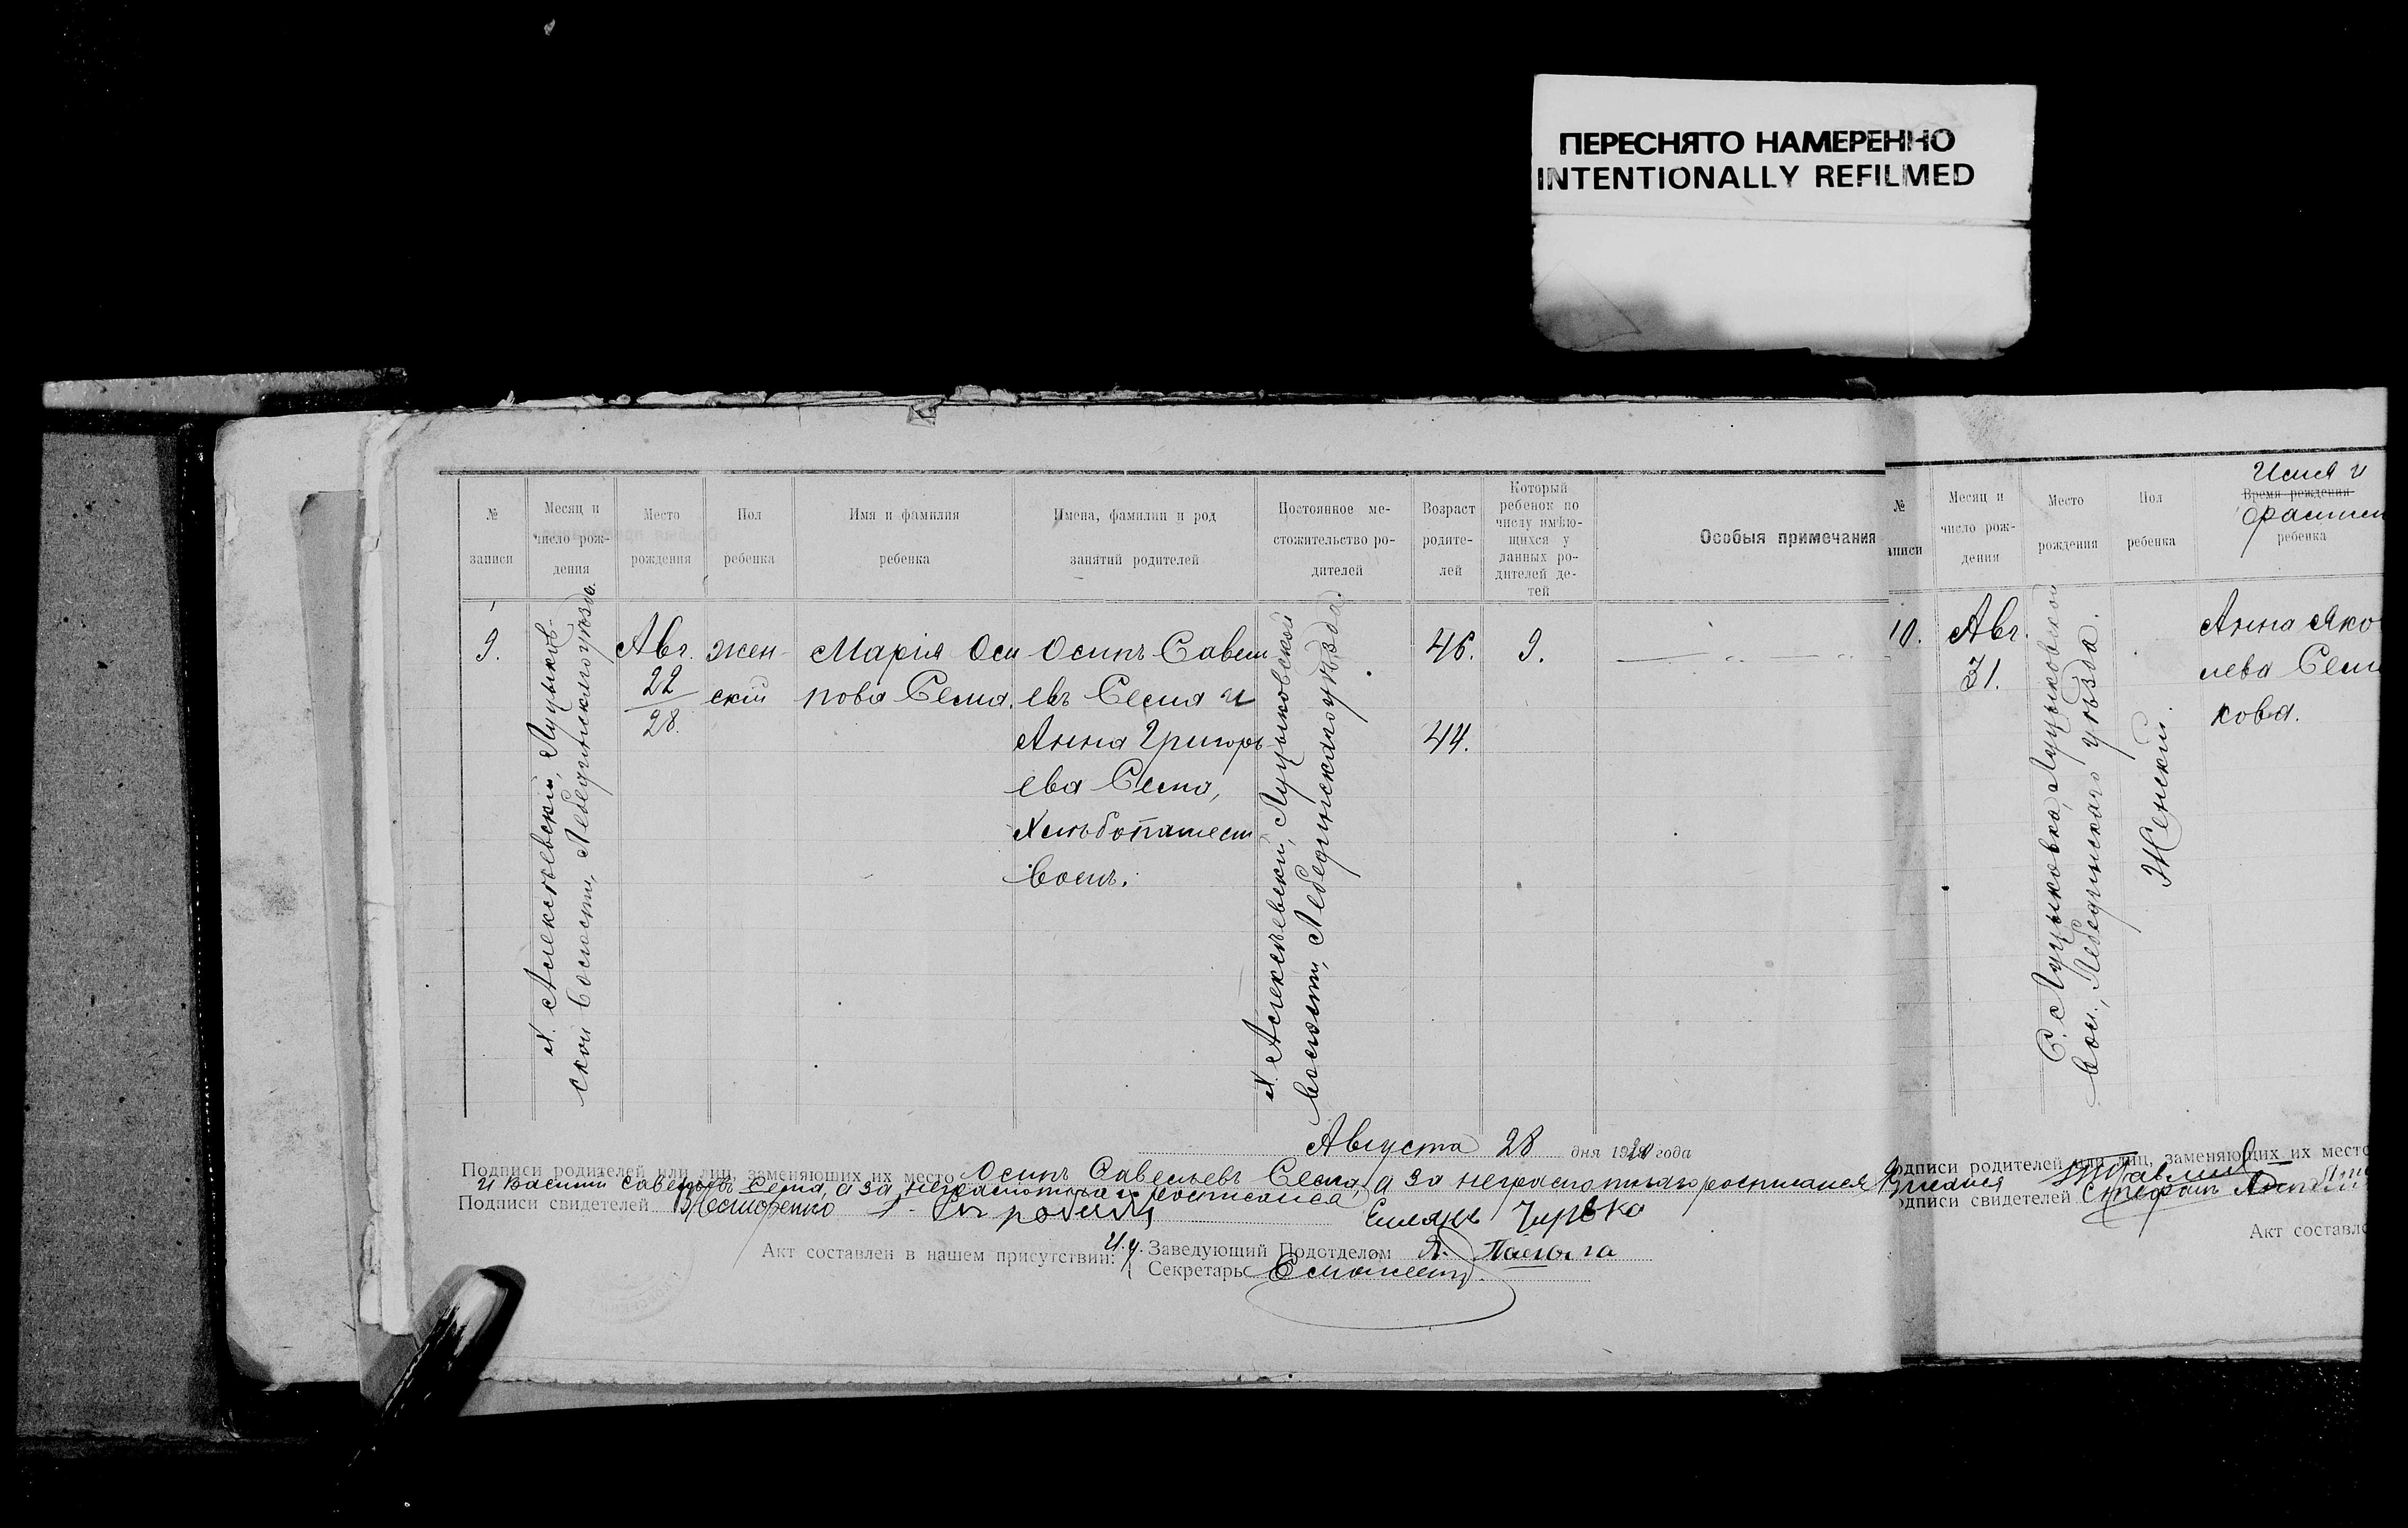 ПЕРЕСНЯТО НАМЕРЕННО
INTENTIONALLY REFILMED
№
записи
Месяц и
число рож-
дения
Место
рождения
Пол
ребенка
Имя и фамилия
ребенка
Имена, фамилии и род
занятий родителей
Постоянное ме-
стожительство ро-
дителей
Возраст
родите-
лей
Который
ребенок по
числу имѣю-
щихся у
данных ро-
дителей де-
тей
Особыя примечания
9.
х. Алексѣевскій, Луцыков-
ской волости, Лебединскаго уѣзда.
Авг.
22
28.
жен-
скій
Марія Оси
пова Сема.
Осипъ Савель
евъ Сема и
Анна Григорь
ева Сема,
Хлѣбопашест
вомъ.
х. Алексѣевскій, Луцыковской
волости, Лебединскаго уѣзда.
46.
44.
9.
Августа 28 дня 1920 года
Подписи родителей или лиц, заменяющих их место Осипъ Савельевъ Сема, а за неграмотнаго росписался
и Василий Савельевъ Сема, а за неграмотнаго росписался
Подписи свидетелей
Акт составлен в нашем присутствии:
И.д. Заведующий Подотделом
Секретарь
№
аписи
Месяц и
число рож-
дения
Место
рождения
Пол
ребенка
Имя и
Время рождения
фамилия
ребенка
10.
Авг.
31.
С. Луцыковка, Луцыковской
вол., Лебединскаго уѣзда.
Женскій.
Анна Яко
влева Сем
кова.
одписи родителей или лиц, заменяющих их место
одписи свидетелей Стефанъ
Акт составле